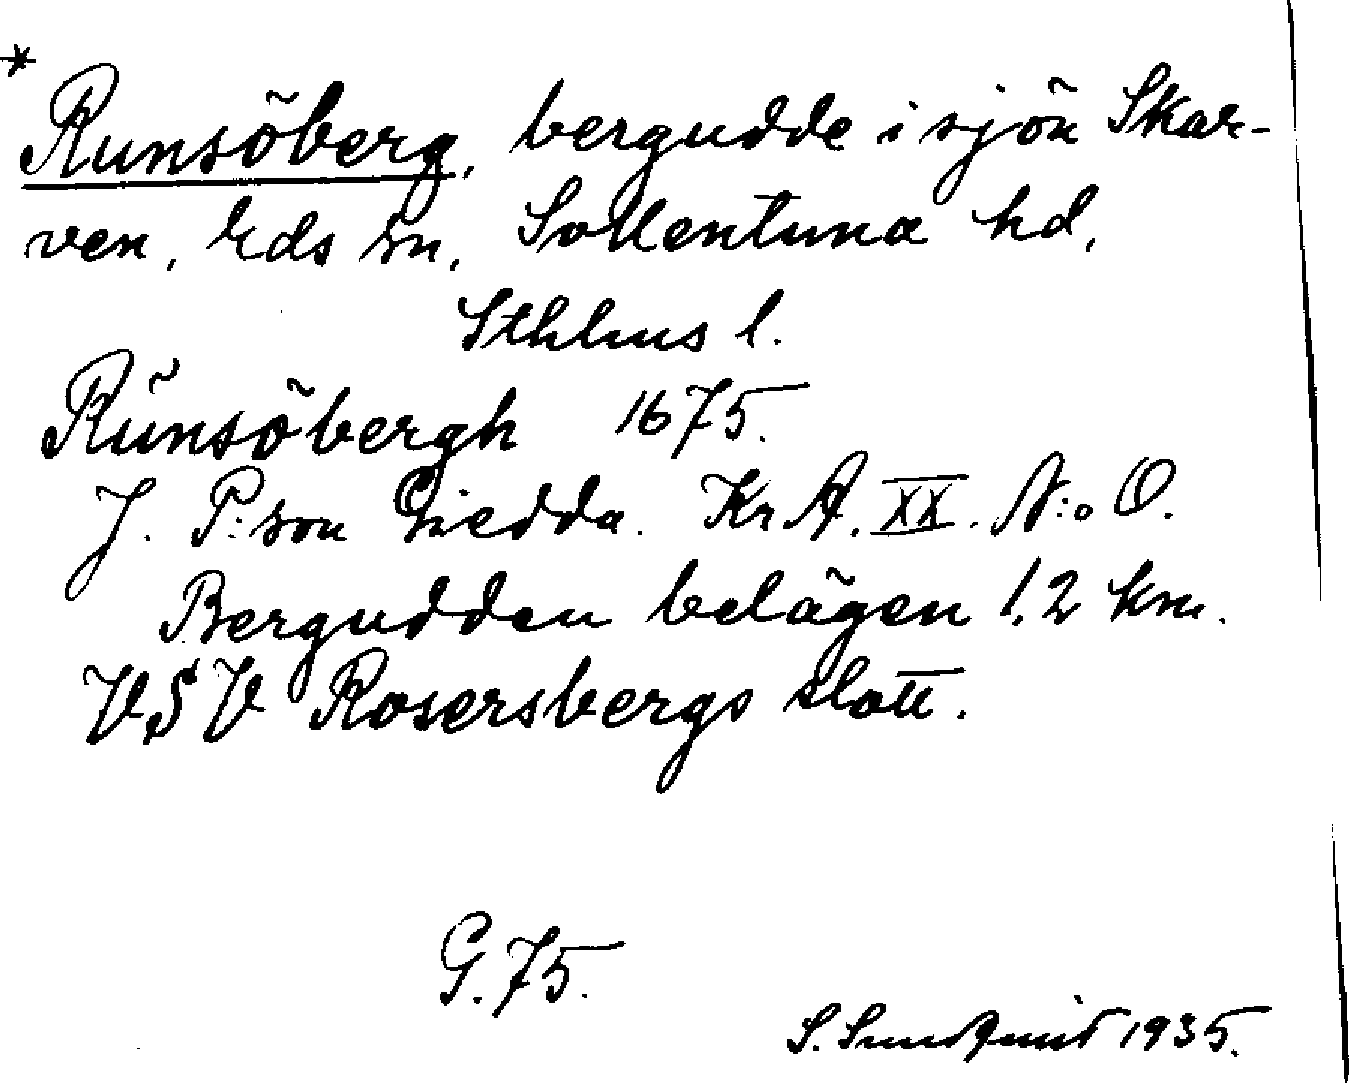 * Runsöberg, bergudde i sjön Skar-
ven, Eds sn, Sollentuna hd,
Sthlms l.
Růnsöbergh 1675.
J. P:son Giedda. KrA. XX. N:o O.
Bergudden belägen 1,2 km.
VSV Rosersbergs slott.
G. 75.
S. Sundquist 1935.